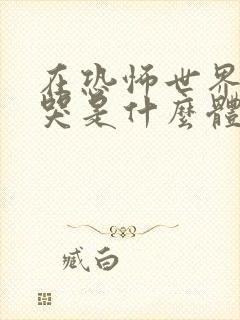 在恐怖世界
哭是什麼體
臧白